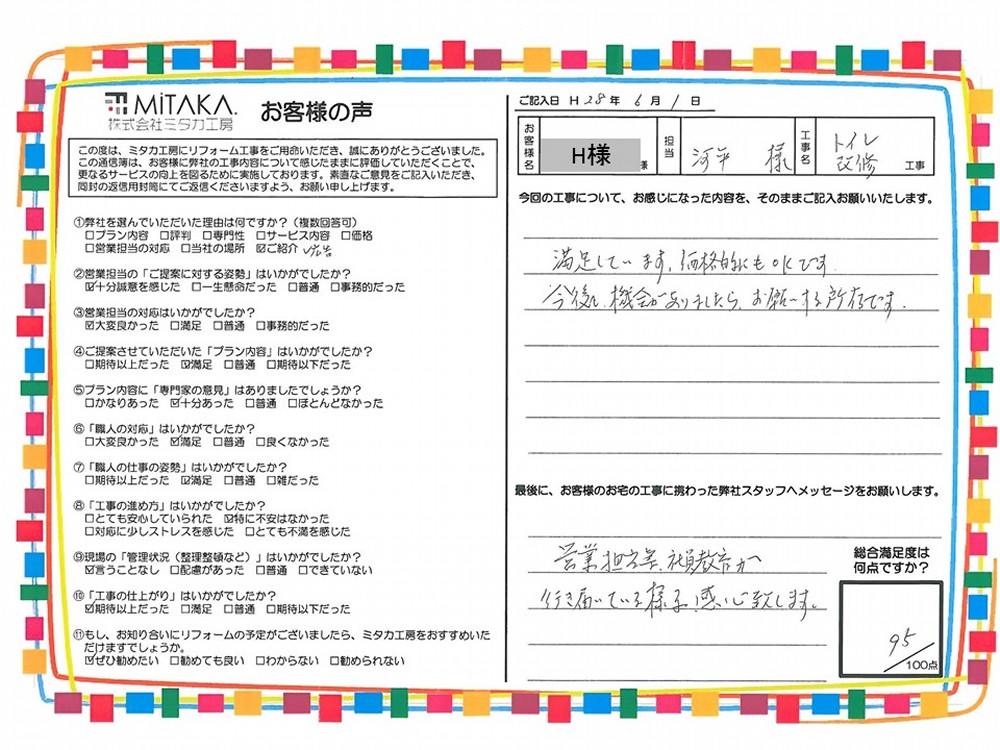 MiTAKA.
株式会社ミタカ工房
お客様の声
この度は、ミタカ工房にリフォーム工事をご用命いただき、誠にありがとうございました。
この通信簿は、お客様に弊社の工事内容について感じたままに評価していただくことで、
更なるサービスの向上を図るために実施しております。素直なご意見をご記入いただき、
同封の返信用封筒にてご返信くださいますよう、お願い申し上げます。
①弊社を選んでいただいた理由は何ですか？（複数回答可）
□プラン内容 □評判 □専門性 □サービス内容 □価格
□営業担当の対応 □当社の場所 ☑ご紹介 広告
②営業担当の「ご提案に対する姿勢」はいかがでしたか？
☑十分誠意を感じた □一生懸命だった □普通 □事務的だった
③営業担当の対応はいかがでしたか？
☑大変良かった □満足 □普通 □事務的だった
④ご提案させていただいた「プラン内容」はいかがでしたか？
□期待以上だった ☑満足 □普通 □期待以下だった
⑤プラン内容に「専門家の意見」はありましたでしょうか？
□かなりあった ☑十分あった □普通 □ほとんどなかった
⑥「職人の対応」はいかがでしたか？
□大変良かった ☑満足 □普通 □良くなかった
⑦「職人の仕事の姿勢」はいかがでしたか？
□期待以上だった ☑満足 □普通 □雑だった
⑧「工事の進め方」はいかがでしたか？
□とても安心していられた ☑特に不安はなかった
□対応に少しストレスを感じた □とても不満を感じた
⑨現場の「管理状況（整理整頓など）」はいかがでしたか？
☑言うことなし □配慮があった □普通 □できていない
⑩「工事の仕上がり」はいかがでしたか？
☑期待以上だった □満足 □普通 □期待以下だった
⑪もし、お知り合いにリフォームの予定がございましたら、ミタカ工房をおすすめいた
だけますでしょうか。
☑ぜひ勧めたい □勧めても良い □わからない □勧められない
ご記入日 H 28 年 6 月 1 日
お客様名 H様 様 担当 河平 様 工事名 トイレ
改修 工事
今回の工事について、お感じになった内容を、そのままご記入お願いいたします。
満足しています。価格的にもOKです。
今後も機会がありましたら、お願いする所存です。
最後に、お客様のお宅の工事に携わった弊社スタッフへメッセージをお願いします。
営業担当等、社員教育が
行き届いている様子、感心致します。
総合満足度は
何点ですか？
95
100点